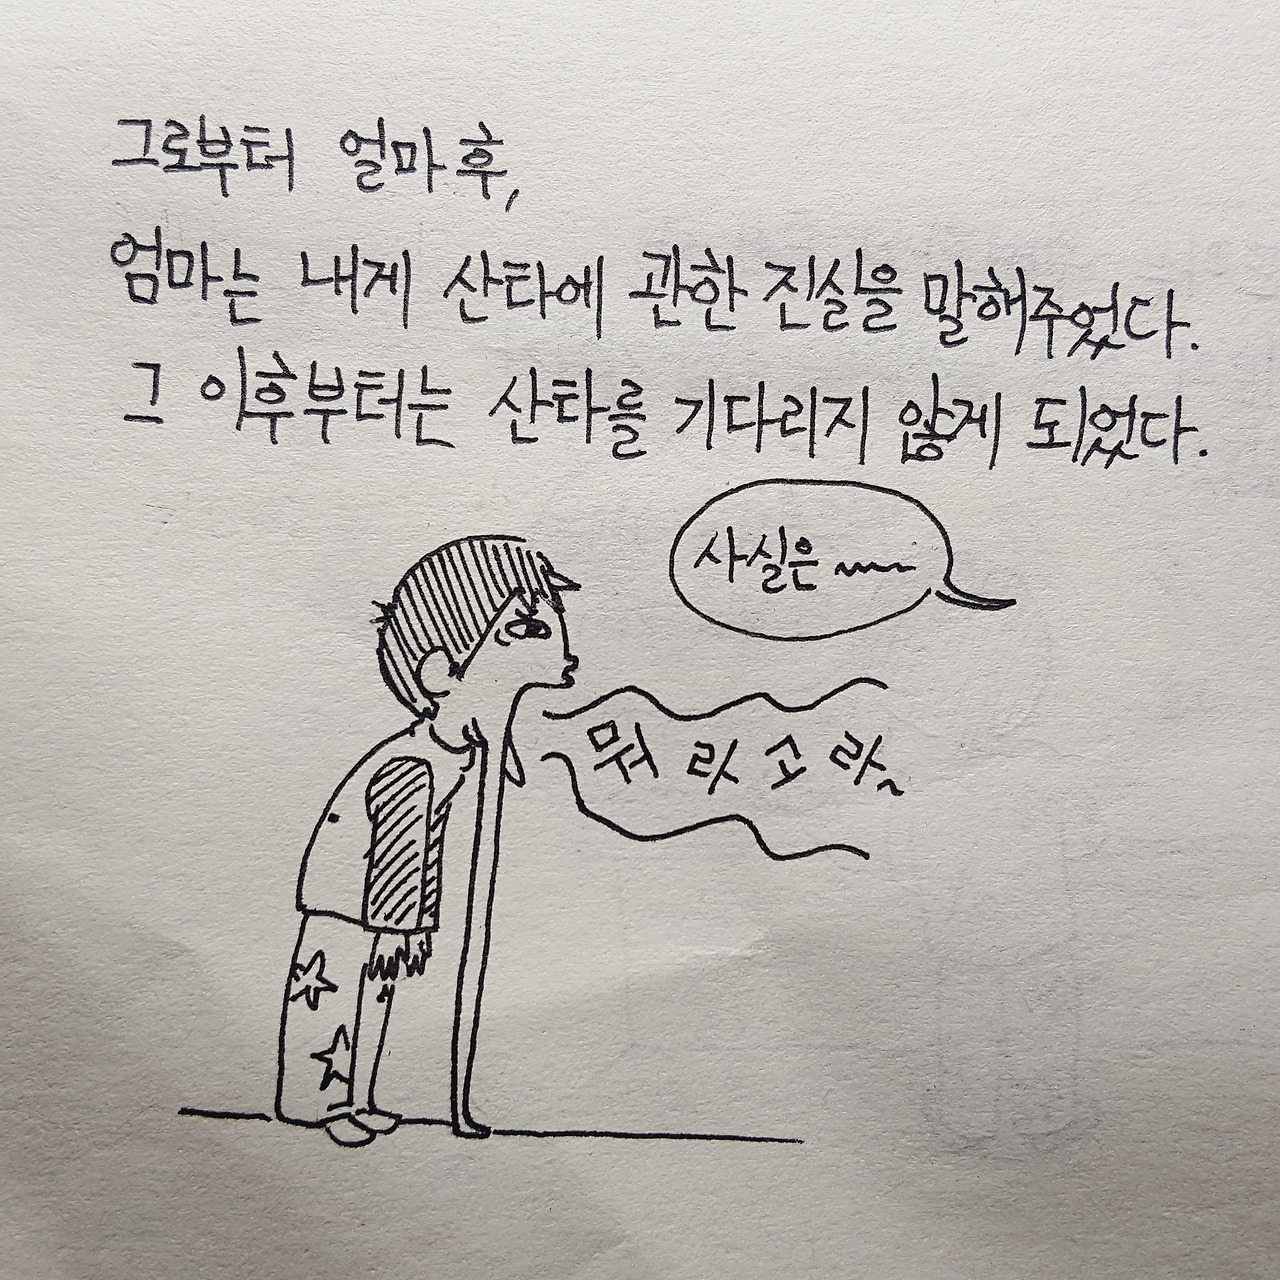 그로부터 얼마 후,
엄마는 내게 산타에 관한 진실을 말해주었다.
그 이후부터는 산타를 기다리지 않게 되었다.
사실은 ~~~
뭐 랏 고 라~